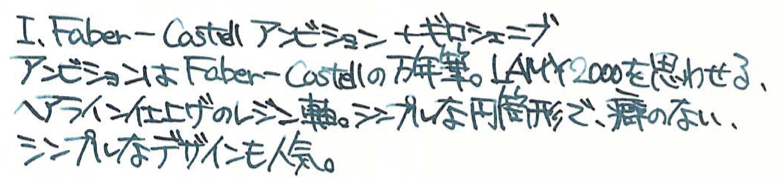 I. Faber-Castell アンビション +ギロシェニブ
アンビションはFaber-Castellの万年筆。LAMY2000を思わせる、
ヘアライン仕上げのレジン軸。シンプルな円筒形で、癖のない、
シンプルなデザインも人気。